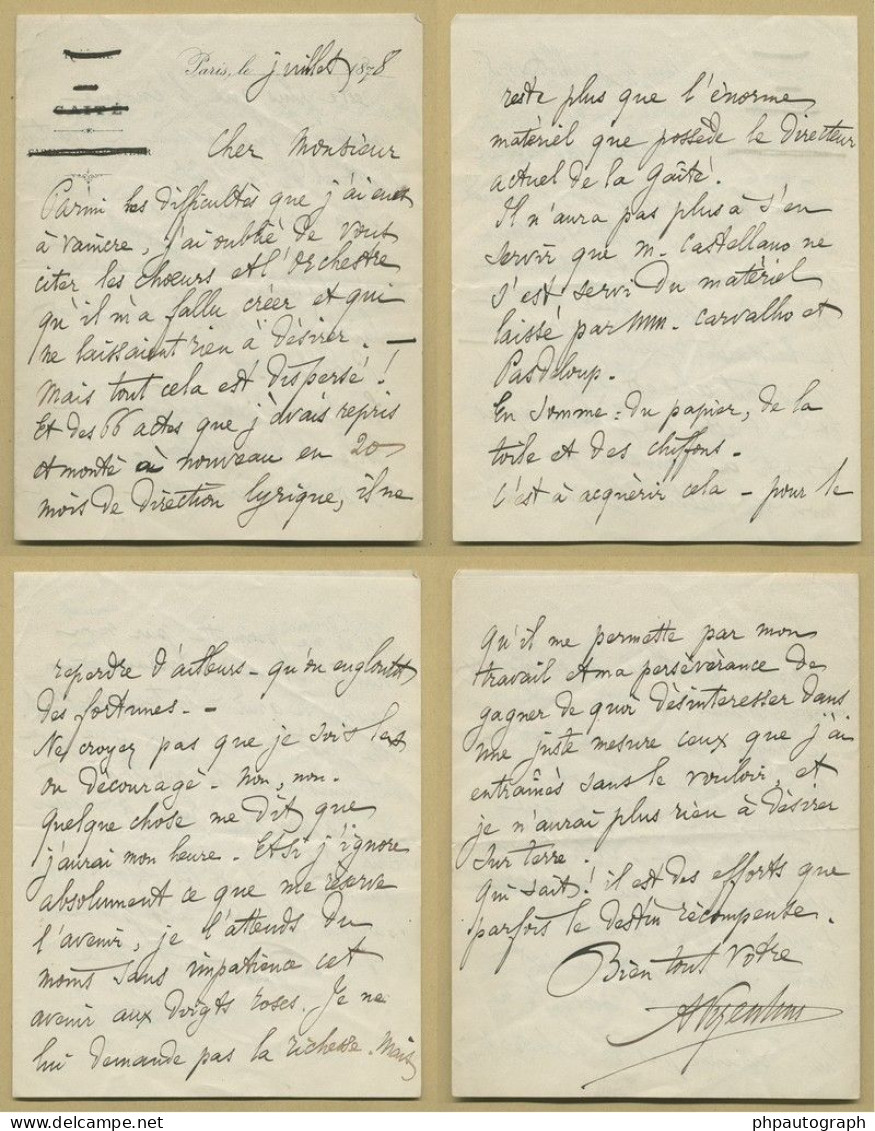 GAITÉ
Paris, le juillet 1878
Cher Monsieur
Parmi les difficultés que j'ai eues
à vaincre, j'ai oublié de vous
citer les choeurs et l'orchestre
qu'il m'a fallu créer et qui
ne laissaient rien à désirer. —
Mais tout cela est dispersé!
Et des 66 actes que j'avais repris
et monté à nouveau en 20
mois de direction lyrique, il ne
reste plus que l'énorme
matériel que possède le Directeur
actuel de la Gaîté.
Il n'aura pas plus à s'en
servir que M. Castellano ne
s'est servi du matériel
laissé par MM. Carvalho et
Pasdeloup.
En somme : du papier, de la
toile et des chiffons.
C'est à acquérir cela — pour le
reperdre d'ailleurs — qu'on engloutit
des fortunes. —
Ne croyez pas que je sois las
ou découragé. Non, non.
Quelque chose me dit que
j'aurai mon heure. Et si j'ignore
absolument ce que me réserve
l'avenir, je l'attends du
moins sans impatience cet
avenir aux doigts roses. Je ne
lui demande pas la richesse. Mais
qu'il me permette par mon
travail et ma persévérance de
gagner de quoi désinteresser dans
une juste mesure ceux que j'ai
entraînés sans le vouloir, et
je n'aurai plus rien à désirer
sur terre.
Qui sait! il est des efforts que
parfois le destin récompense.
Bien tout votre
AVizentini
delcampe.net
phpautograph